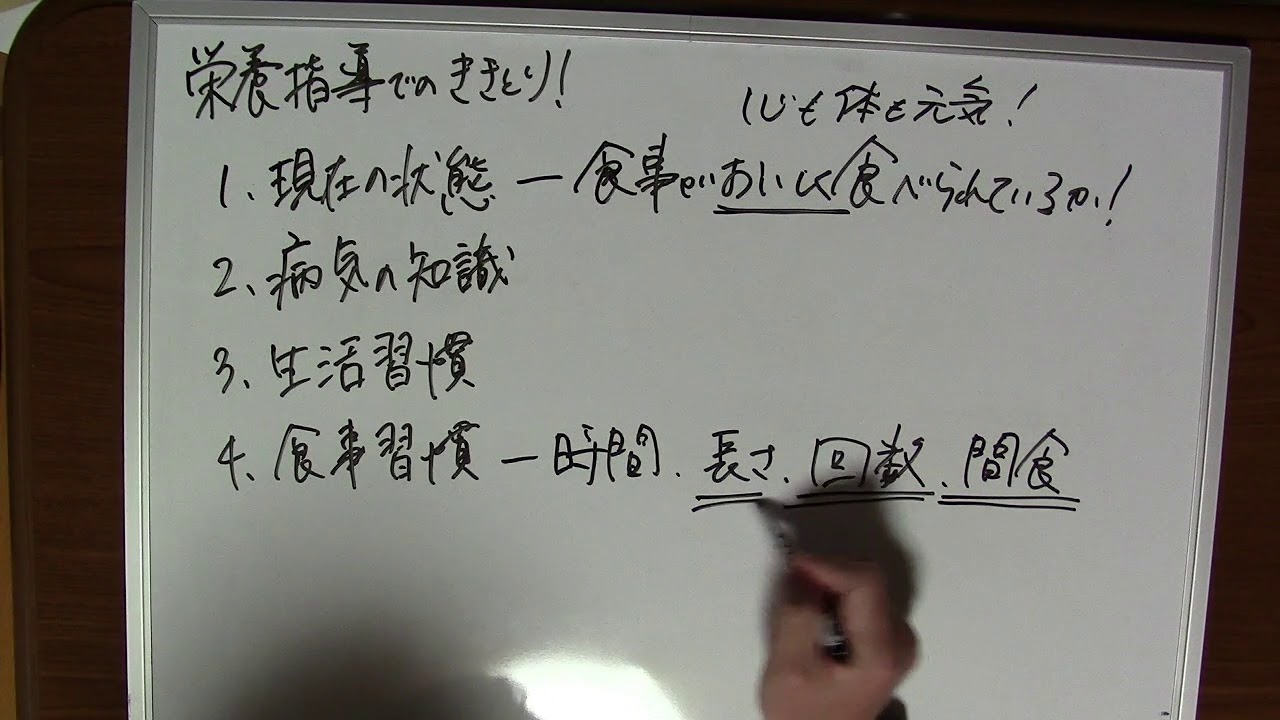 栄養指導でのききとり!
心も体も元気!
1、現在の状態 ー 食事がおいしく食べられているか!
2、病気の知識
3、生活習慣
4、食事習慣 ー 時間、長さ、回数、間食